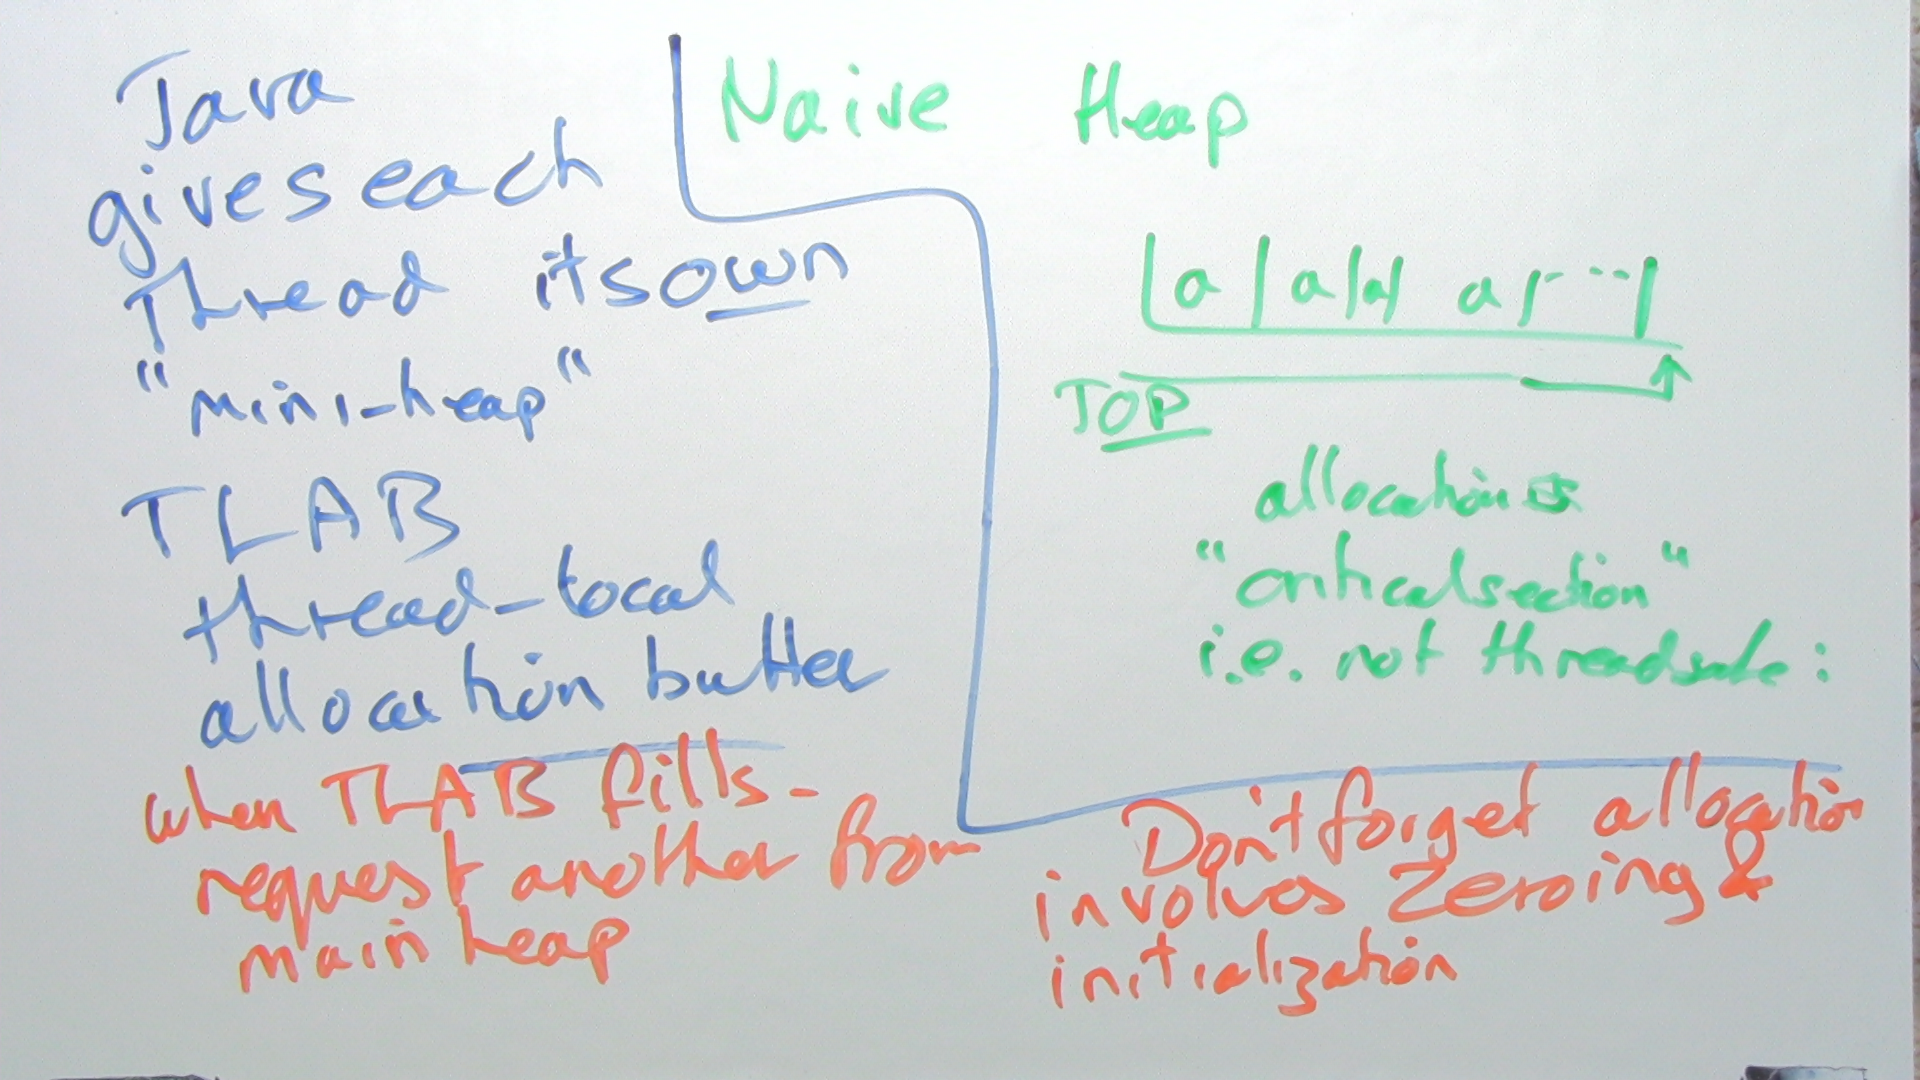 Java
gives each
Thread its own
"mini-heap"
TLAB
thread-local
allocation buffer
when TLAB fills-
request another from
main heap
Naive Heap
a | a | a | a | ...
TOP
allocation is
"critical section"
i.e. not threadsafe:
Don't forget allocation
involves Zeroing &
initialization